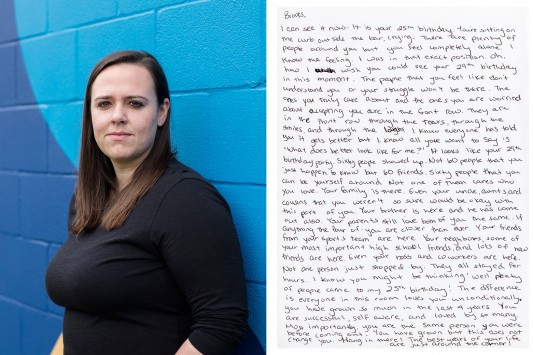 Brooks,
I can see it now. It is your 25th birthday. You're sitting on
the curb outside the bar, crying. There are plenty of
people around you but you feel completely alone. I
know the feeling. I was in that exact position. Oh,
how I wish you could see your 29th birthday
in this moment. The people that you feel like don't
understand you or your struggle won't be there. The
ones you truly care about and the ones you are worried
about accepting you are in the front row. They are
in the front row through the tears, through the
smiles, and through the I know everyone has told
you it gets better but I know all you want to say is
"What does better look like for me?" It looks like your 29th
birthday party. Sixty people showed up. Not 60 people that you
just happen to know but 60 friends. Sixty people that you
can be yourself around. Not one of them cares who
you love. Your family is there. Even your uncle, aunts, and
cousins that you weren't so sure would be okay with
this part of you. Your brother is here and he has come
out also. Your parents still love both of you the same. If
anything the four of you are closer than ever. Your friends
from your sports team are here. Your neighbors, some of
your most important high school friends, and lots of new
friends are here. Even your boss and coworkers are here.
Not one person just stopped by. They all stayed for
hours. I know you might be thinking "well plenty
of people came to my 25th birthday." The difference
is everyone in this room loves you unconditionally.
You have grown so much in the last 4 years. You
are successful, self aware, and loved by so many.
Most importantly, you are the same person you were
before coming out. You have grown but this does not
change you. Hang in there! The best years of your life
are just around the corner!